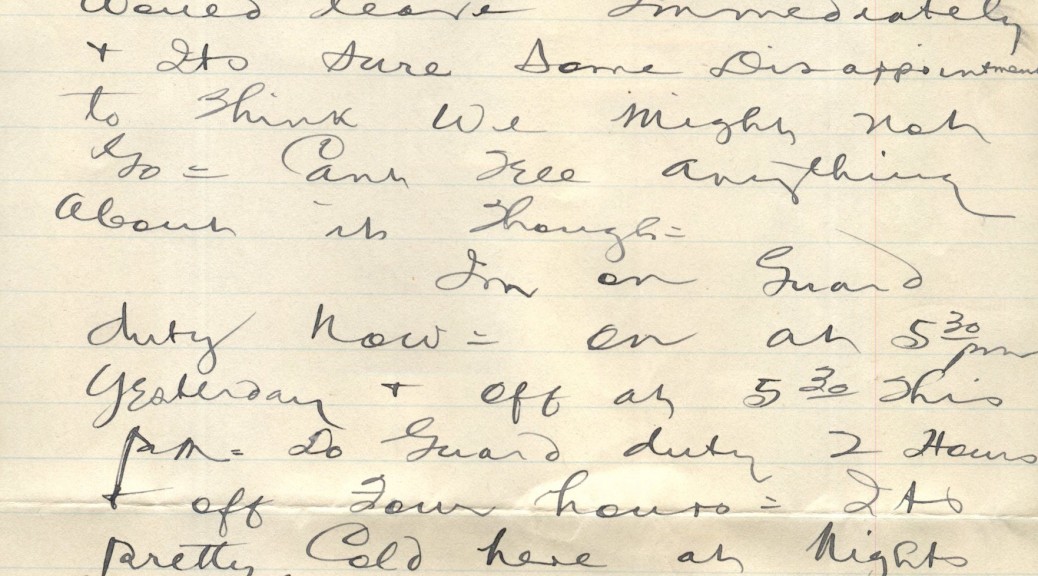 would leave immediately
+ Its sure Some Disappointment
to think We might not
Go = Cant Tell anything
About it though =
Im on Guard
duty Now = on at 5 30 pm
Yesterday + off at 5 30 this
pm = Do Guard duty 2 Hours
+ off Four hours = Its
pretty Cold here at Nights